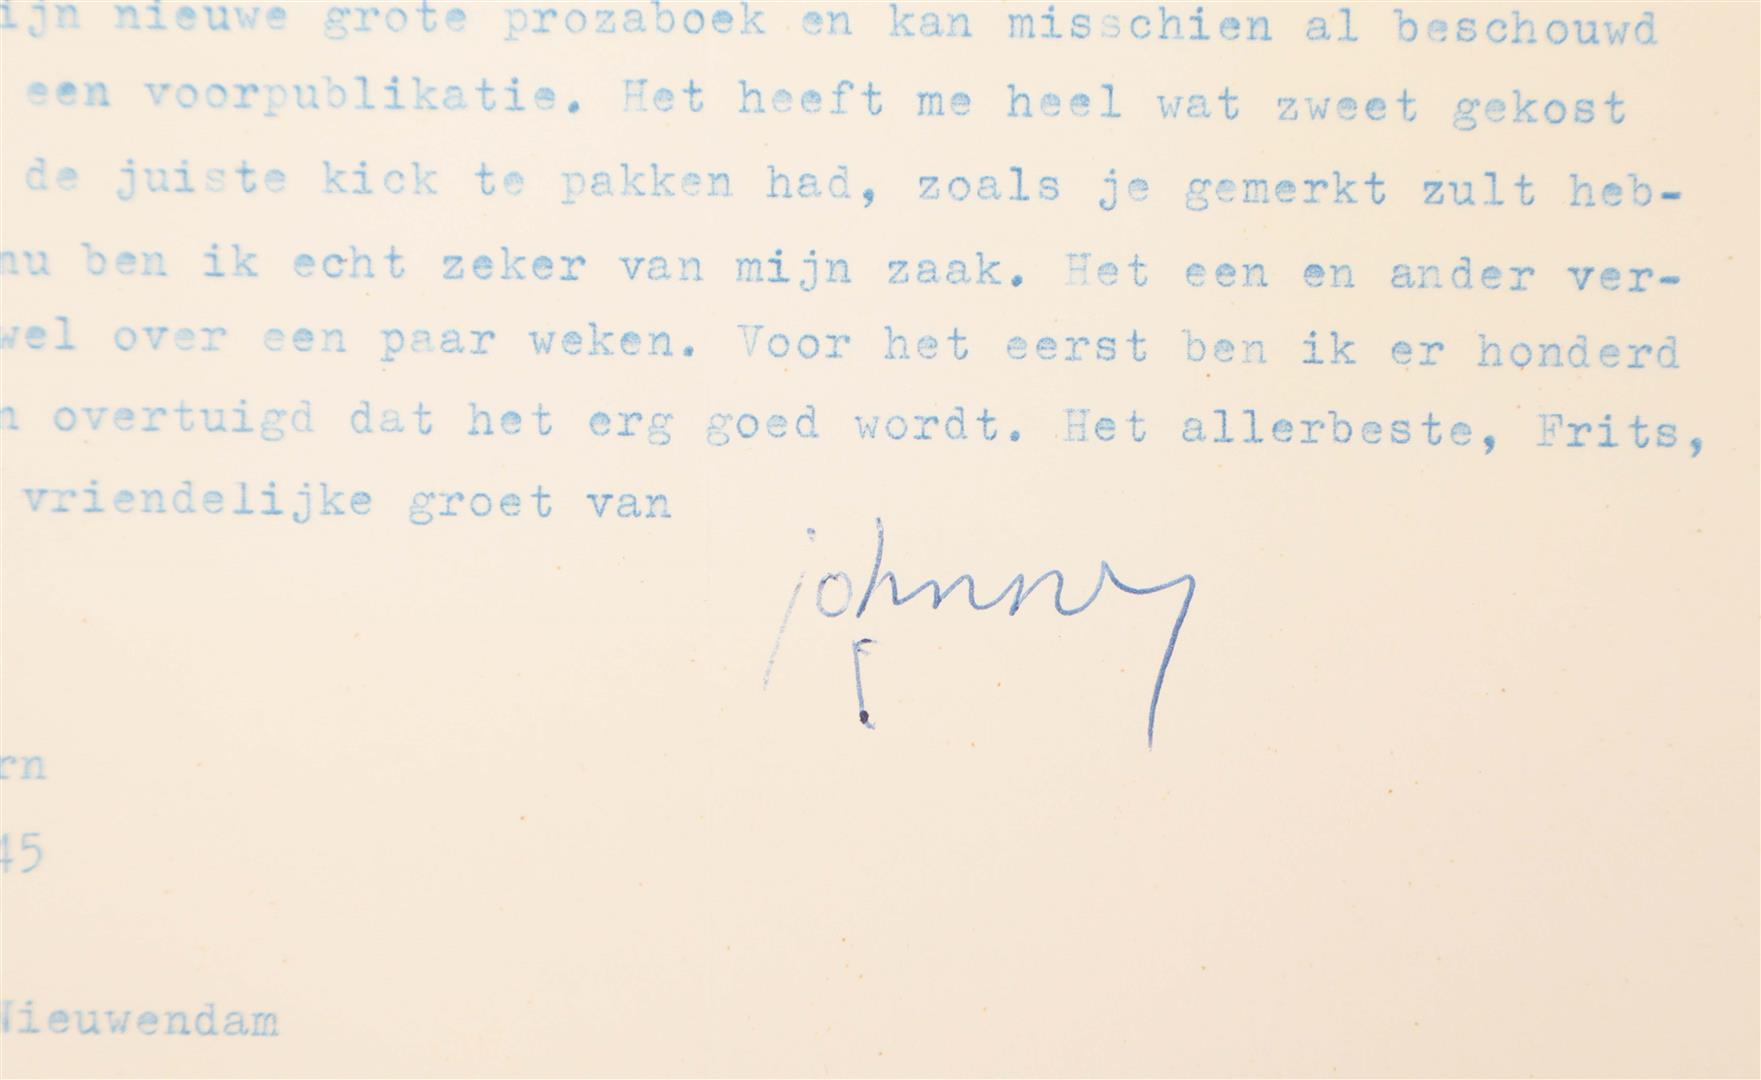 ijn nieuwe grote prozaboek en kan misschien al beschouwd
een voorpublikatie. Het heeft me heel wat zweet gekost
de juiste kick te pakken had, zoals je gemerkt zult heb-
nu ben ik echt zeker van mijn zaak. Het een en ander ver-
wel over een paar weken. Voor het eerst ben ik er honderd
n overtuigd dat het erg goed wordt. Het allerbeste, Frits,
vriendelijke groet van
johnny
rn
45
Nieuwendam